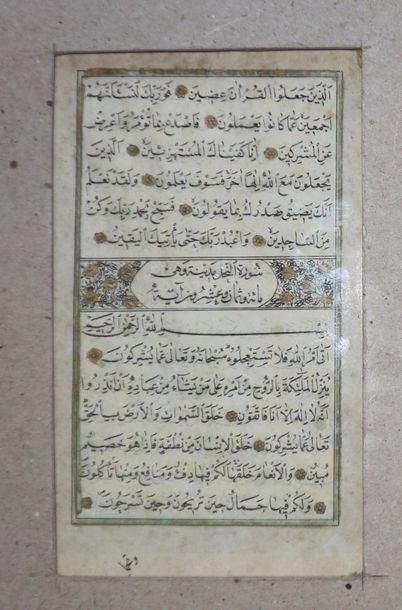 الَّذِينَ جَعَلُوا الْقُرْآنَ عِضِينَ فَوَرَبِّكَ لَنَسْئَلَنَّهُمْ
اَجْمَعِينَ عَمَّا كَانُوا يَعْمَلُونَ فَاصْدَعْ بِمَا تُؤْمَرُ وَاَعْرِضْ
عَنِ الْمُشْرِكِينَ اِنَّا كَفَيْنَاكَ الْمُسْتَهْزِئِينَ الَّذِينَ
يَجْعَلُونَ مَعَ اللهِ اِلٰهًا آخَرَ فَسَوْفَ يَعْلَمُونَ وَلَقَدْ نَعْلَمُ
اَنَّكَ يَضِيقُ صَدْرُكَ بِمَا يَقُولُونَ فَسَبِّحْ بِحَمْدِ رَبِّكَ وَكُنْ
مِنَ السَّاجِدِينَ وَاعْبُدْ رَبَّكَ حَتَّى يَأْتِيَكَ الْيَقِينُ
سورة النحل وهى
مائة وثمان وعشرون آية
بِسْمِ اللهِ الرَّحْمٰنِ الرَّحِيمِ
اَتٰى اَمْرُ اللهِ فَلَا تَسْتَعْجِلُوهُ سُبْحَانَهُ وَتَعَالٰى عَمَّا يُشْرِكُونَ
يُنَزِّلُ الْمَلٰئِكَةَ بِالرُّوحِ مِنْ اَمْرِهِ عَلٰى مَنْ يَشَاءُ مِنْ عِبَادِهِ اَنْ اَنْذِرُوا
اَنَّهُ لَا اِلٰهَ اِلَّا اَنَا فَاتَّقُونِ خَلَقَ السَّمٰوَاتِ وَالْاَرْضَ بِالْحَقِّ
تَعَالٰى عَمَّا يُشْرِكُونَ خَلَقَ الْاِنْسَانَ مِنْ نُطْفَةٍ فَاِذَا هُوَ خَصِيمٌ
مُبِينٌ وَالْاَنْعَامَ خَلَقَهَا لَكُمْ فِيهَا دِفْءٌ وَمَنَافِعُ وَمِنْهَا تَأْكُلُونَ
وَلَكُمْ فِيهَا جَمَالٌ حِينَ تُرِيحُونَ وَحِينَ تَسْرَحُونَ